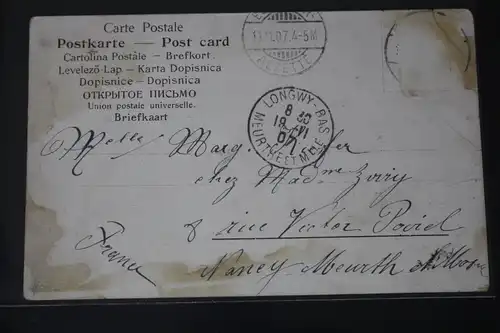 Carte Postale
Postkarte — Post card
Cartolina Postale – Brefkort
Levelező-Lap – Karta Dopisnica
Dopisnice – Dopisnica
ОТКРЫТОЕ ПИСЬМО
Union postale universelle.
Briefkaart
11.VI.07. 4-5M
LONGWY-BAS
8 30
18 VI
07
MEURTHE ET MLLE
Melle Marg.
chez Madme
8 rue Victor
Nancy Meurth et Mose
France